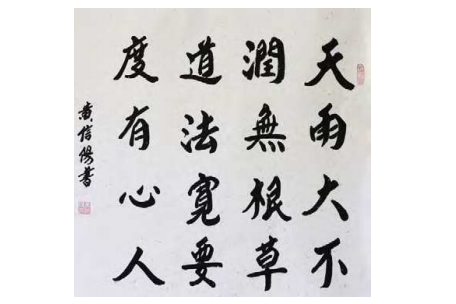 天雨大不
潤無根草
道法寬要
度有心人
黄信儒書